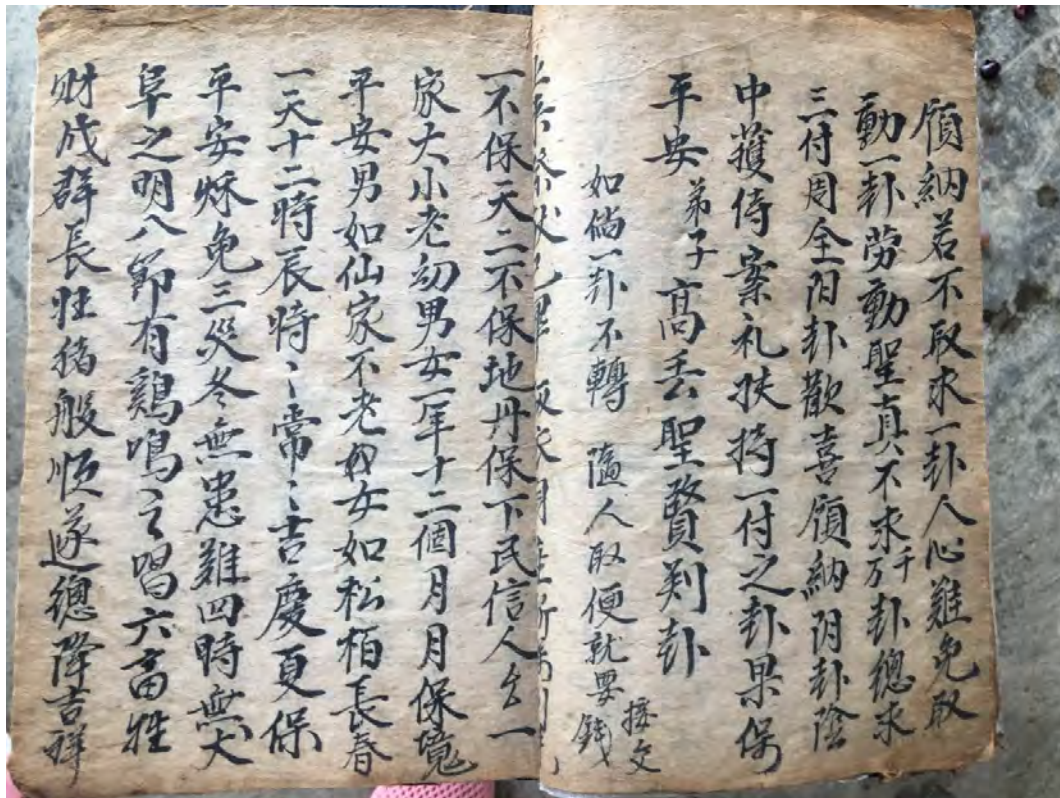 領納若不取求一卦人心難免取
動一卦劳動聖真不求千万卦總求
三付周全阳卦歡喜領納阴卦陰
中獲侍案礼扶持一付之卦果保
平安弟子高丢聖賢判卦
如倘一卦不轉 隨人取便就要錢
接文
一不保天二不保地丹保下民信人台一
家大小老幼男女一年十二個月月保境
平安男如仙家不老女如松栢長春
一天十二時辰時〻常〻吉慶更保
平安秌免三災冬無患難四時無
阜之明八節有鷄鳴之唱六畜牲
財成群長牲猪般順遂總降吉祥